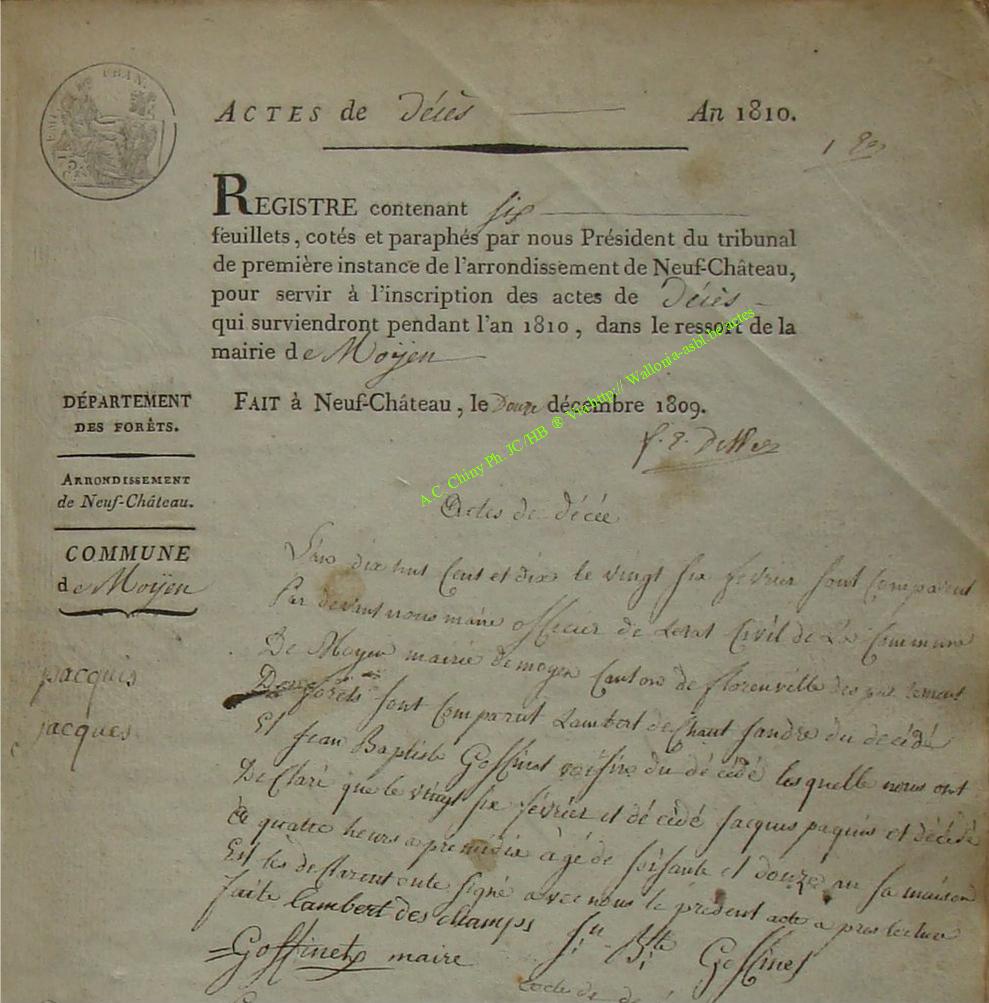 EMPIRE FRAN.
75 C.
ACTES de décès An 1810.
1 er
REGISTRE contenant six
feuillets, cotés et paraphés par nous Président du tribunal
de première instance de l'arrondissement de Neuf-Château,
pour servir à l'inscription des actes de décès
qui surviendront pendant l'an 1810, dans le ressort de la
mairie de Moÿen
DÉPARTEMENT
DES FORÊTS.
ARRONDISSEMENT
de Neuf-Château.
COMMUNE
de Moÿen
FAIT à Neuf-Château, le Douze décembre 1809.
A.C. Chiny Ph. JC/HB ® Via http:// Wallonia-asbl.be/actes
Actes de décée
L'an dix huit Cent et dix le vingt six fevrier sont Comparent
Par devant nous maire officier de Letat Civil de La Commune
De Moyen mairie de moyen Cantons de florenville des partement
Des foréts sont Comparut Lambert deChant Jandre du decédé
Et Jean Baptiste Goffinet voisire du décédé lesquelle nous ont
De Claré que le vingt six février et décédé Jacquis paquis et décédé
à quatre heurs apremidix àgé de soisante et douze an sa maison
Est les desclarent onte signé avec nous le présent acte apres lecture
faite Lambert des champs Jn Bte Goffinet
=Goffinet maire
pacquis
jacques